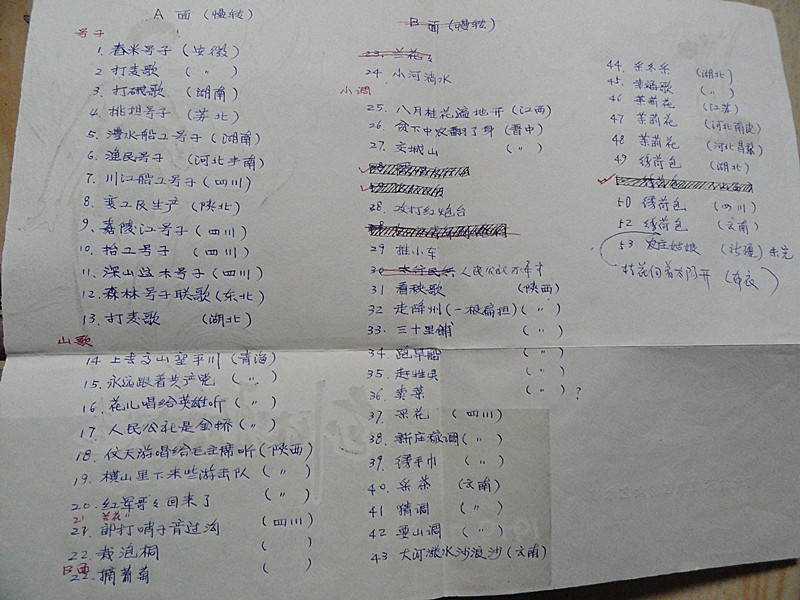 A 面 (慢转)
号子
1. 舂米号子 (安徽)
2 打麦歌 ( 〃 )
3. 打硪歌 (湖南)
4. 挑担号子 (苏北)
5. 澧水船工号子 (湖南)
6. 渔民号子 (河北丰南)
7. 川江船工号子 (四川)
8. 变工队生产 (陕北)
9. 嘉陵江号子 (四川)
10. 抬工号子 (四川)
11. 深山运木号子 (四川)
12. 森林号子联歌 (东北)
13. 打麦歌 (湖北)
山歌
14 上去高山望平川 (青海)
15. 永远跟着共产党 ( 〃 )
16. 花儿唱给英雄听 ( 〃 )
17. 人民公社是金桥 ( 〃 )
18. 仪天游唱给毛主席听 (陕西)
19. 横山里下来些游击队 ( 〃 )
20. 红军哥々回来了 ( 〃 )
21 兰花〃
21. 即打哨子音过沟 (四川)
22. 栽泡桐 ( )
B面
22. 摘葡萄 ( )
B 面 (慢转)
23. 兰花々
24. 小河淌水
小调
25. 八月桂花遍地开 (江西)
26. 贫下中农翻了身 (晋中)
27. 交城山 ( 〃 )
28. 攻打红炮台
29 推小车
30 人民公社万年才
31 看秧歌 (陕西)
32 走绛州 (一根扁担) ( 〃 )
33. 三十里铺 ( 〃 )
34. 跑旱船 ( 〃 )
35. 赶牲灵 ( 〃 )
36. 卖菜 ( 〃 ) ?
37. 采花 (四川)
38. 新庄稼调 ( 〃 )
39. 绣手巾 ( 〃 )
40. 采茶 (云南)
41 猜调 ( 〃 )
42 耍山调 ( 〃 )
43 大河涨水沙浪沙 (云南)
44. (湖北)
45. 幸福歌 ( 〃 )
46 茉莉花 (江苏)
47 茉莉花 (河北南皮)
48 茉莉花 (河北昌黎)
49 绣荷包 (湖北)
50 绣荷包 (四川)
52 绣荷包 (云南)
53 姑娘 (新疆) 未完
桂花向着太阳开 (布衣)